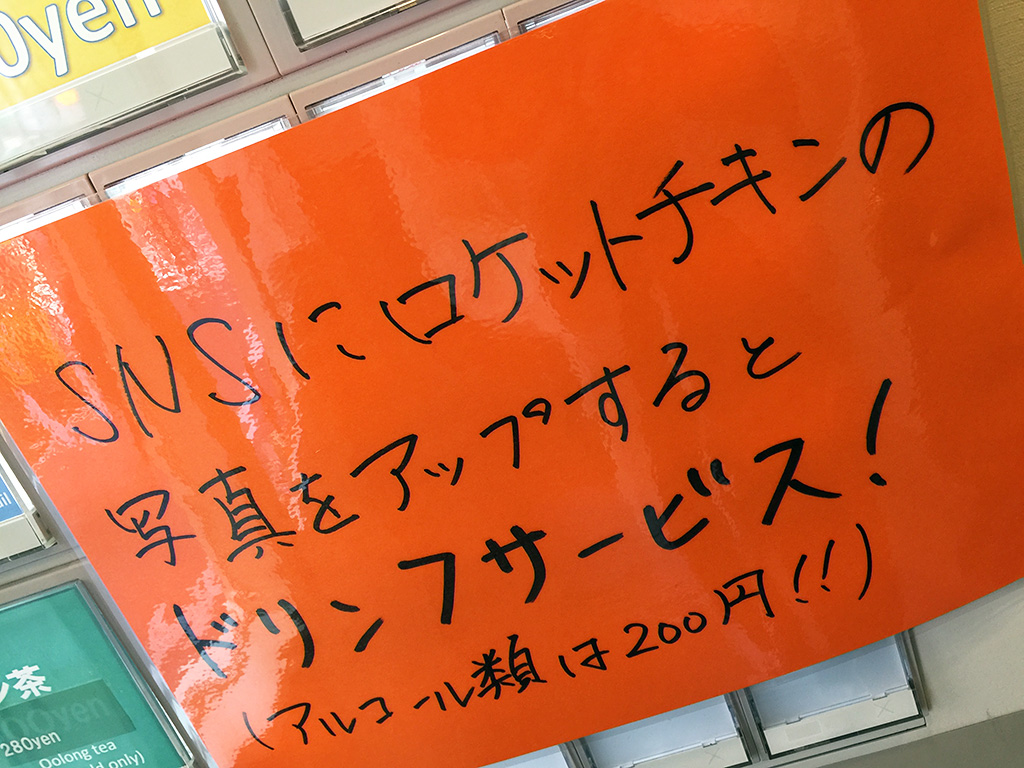 0yen
SNSにロケットチキンの
写真をアップすると
ドリンフサービス!
(アルコール類は200円!!)
ail
ン茶
00yen
280yen
Oolong tea
d only)